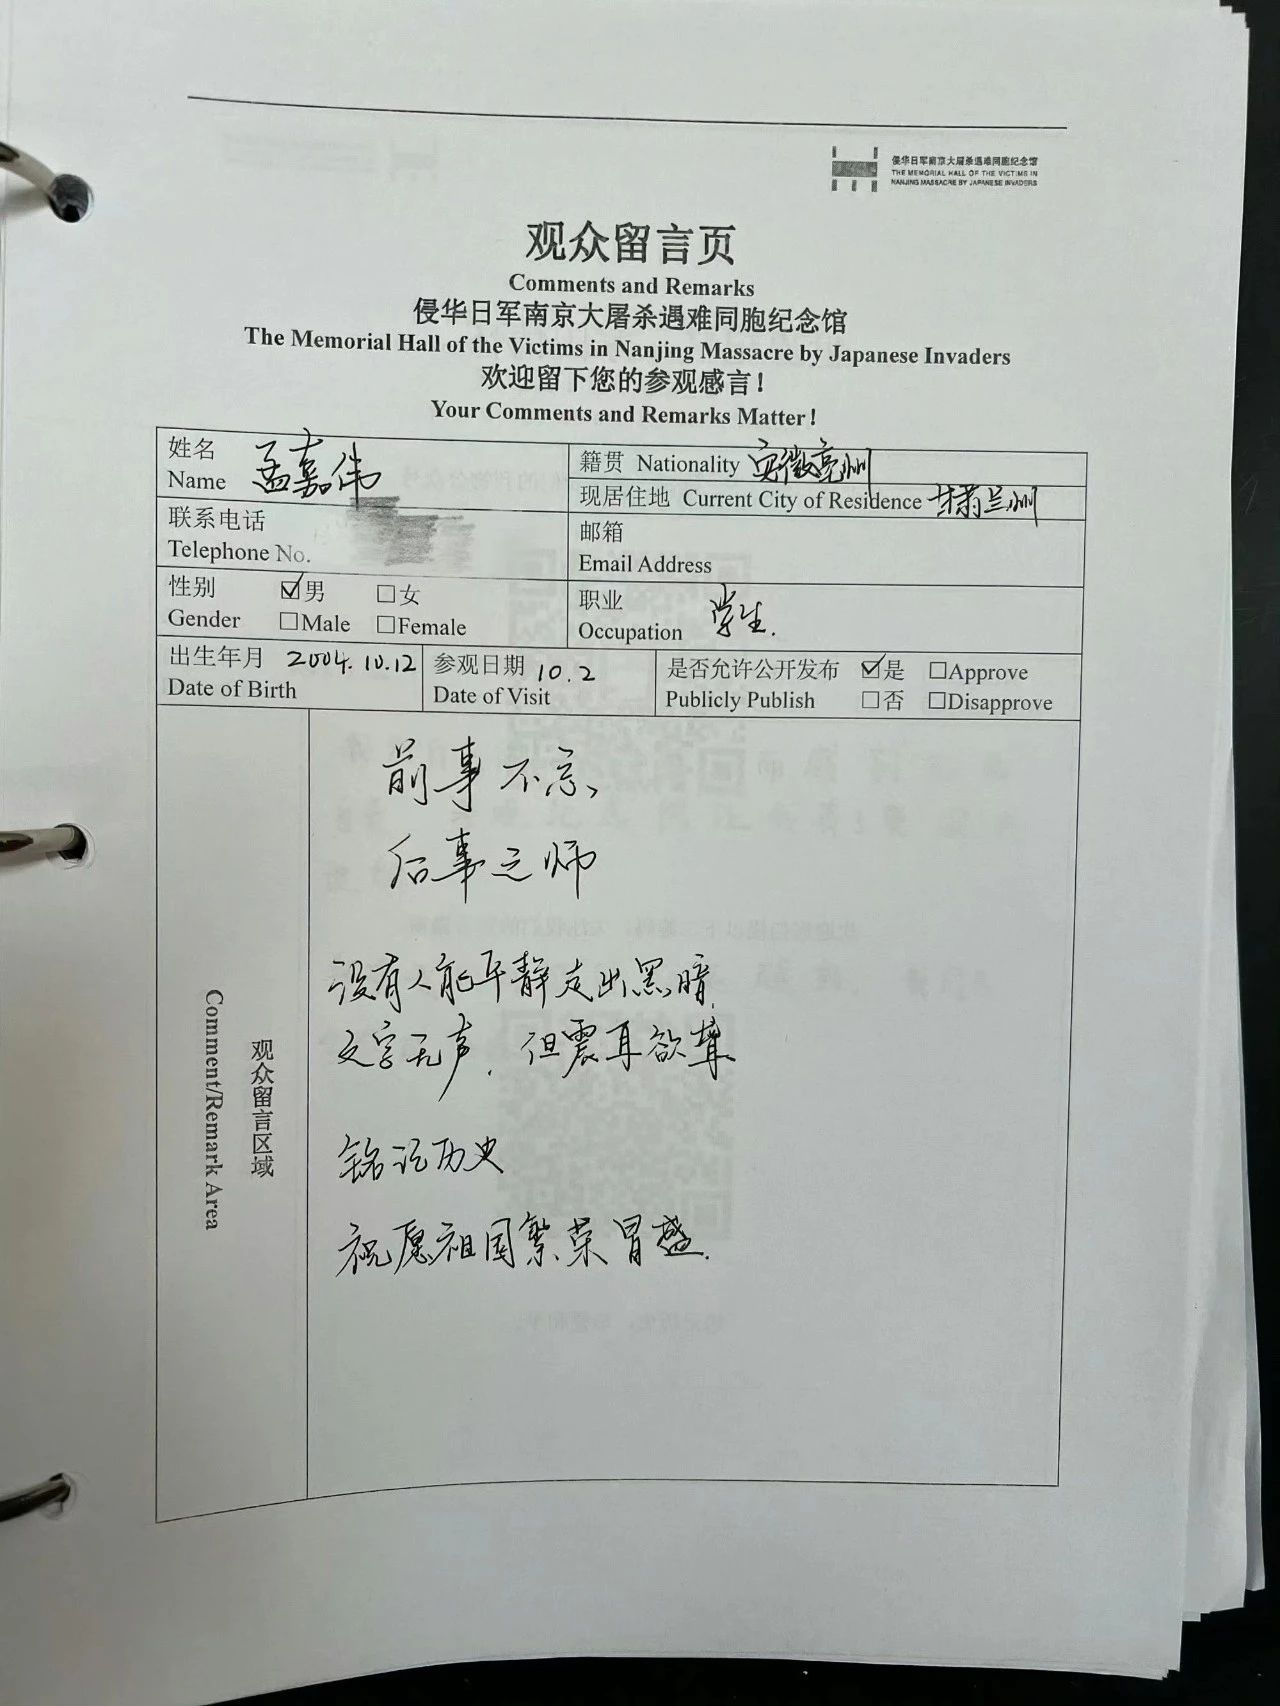 侵华日军南京大屠杀遇难同胞纪念馆
THE MEMORIAL HALL OF THE VICTIMS IN
NANJING MASSACRE BY JAPANESE INVADERS
观众留言页
Comments and Remarks
侵华日军南京大屠杀遇难同胞纪念馆
The Memorial Hall of the Victims in Nanjing Massacre by Japanese Invaders
欢迎留下您的参观感言!
Your Comments and Remarks Matter!
姓名 孟嘉伟
Name
籍贯 Nationality 安徽亳州
现居住地 Current City of Residence 甘肃兰州
联系电话
Telephone No.
邮箱
Email Address
性别 ☑男 □女
Gender □Male □Female
职业 学生.
Occupation
出生年月 2004.10.12
Date of Birth
参观日期 10.2
Date of Visit
是否允许公开发布 ☑是 □Approve
Publicly Publish □否 □Disapprove
观众留言区域
Comment/Remark Area
前事不忘、
后事之师
没有人能平静走出黑暗.
文字无声，但震耳欲聋
铭记历史
祝愿祖国繁荣冒盛.